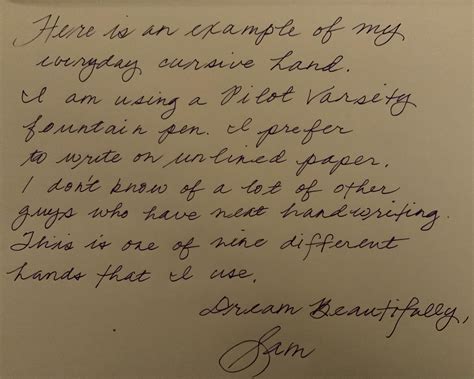 Here is an example of my
everyday cursive hand.
I am using a Pilot Varsity
fountain pen. I prefer
to write on unlined paper.
I don't know of a lot of other
guys who have neat handwriting.
This is one of nine different
hands that I use.
Dream Beautifully,
Sam